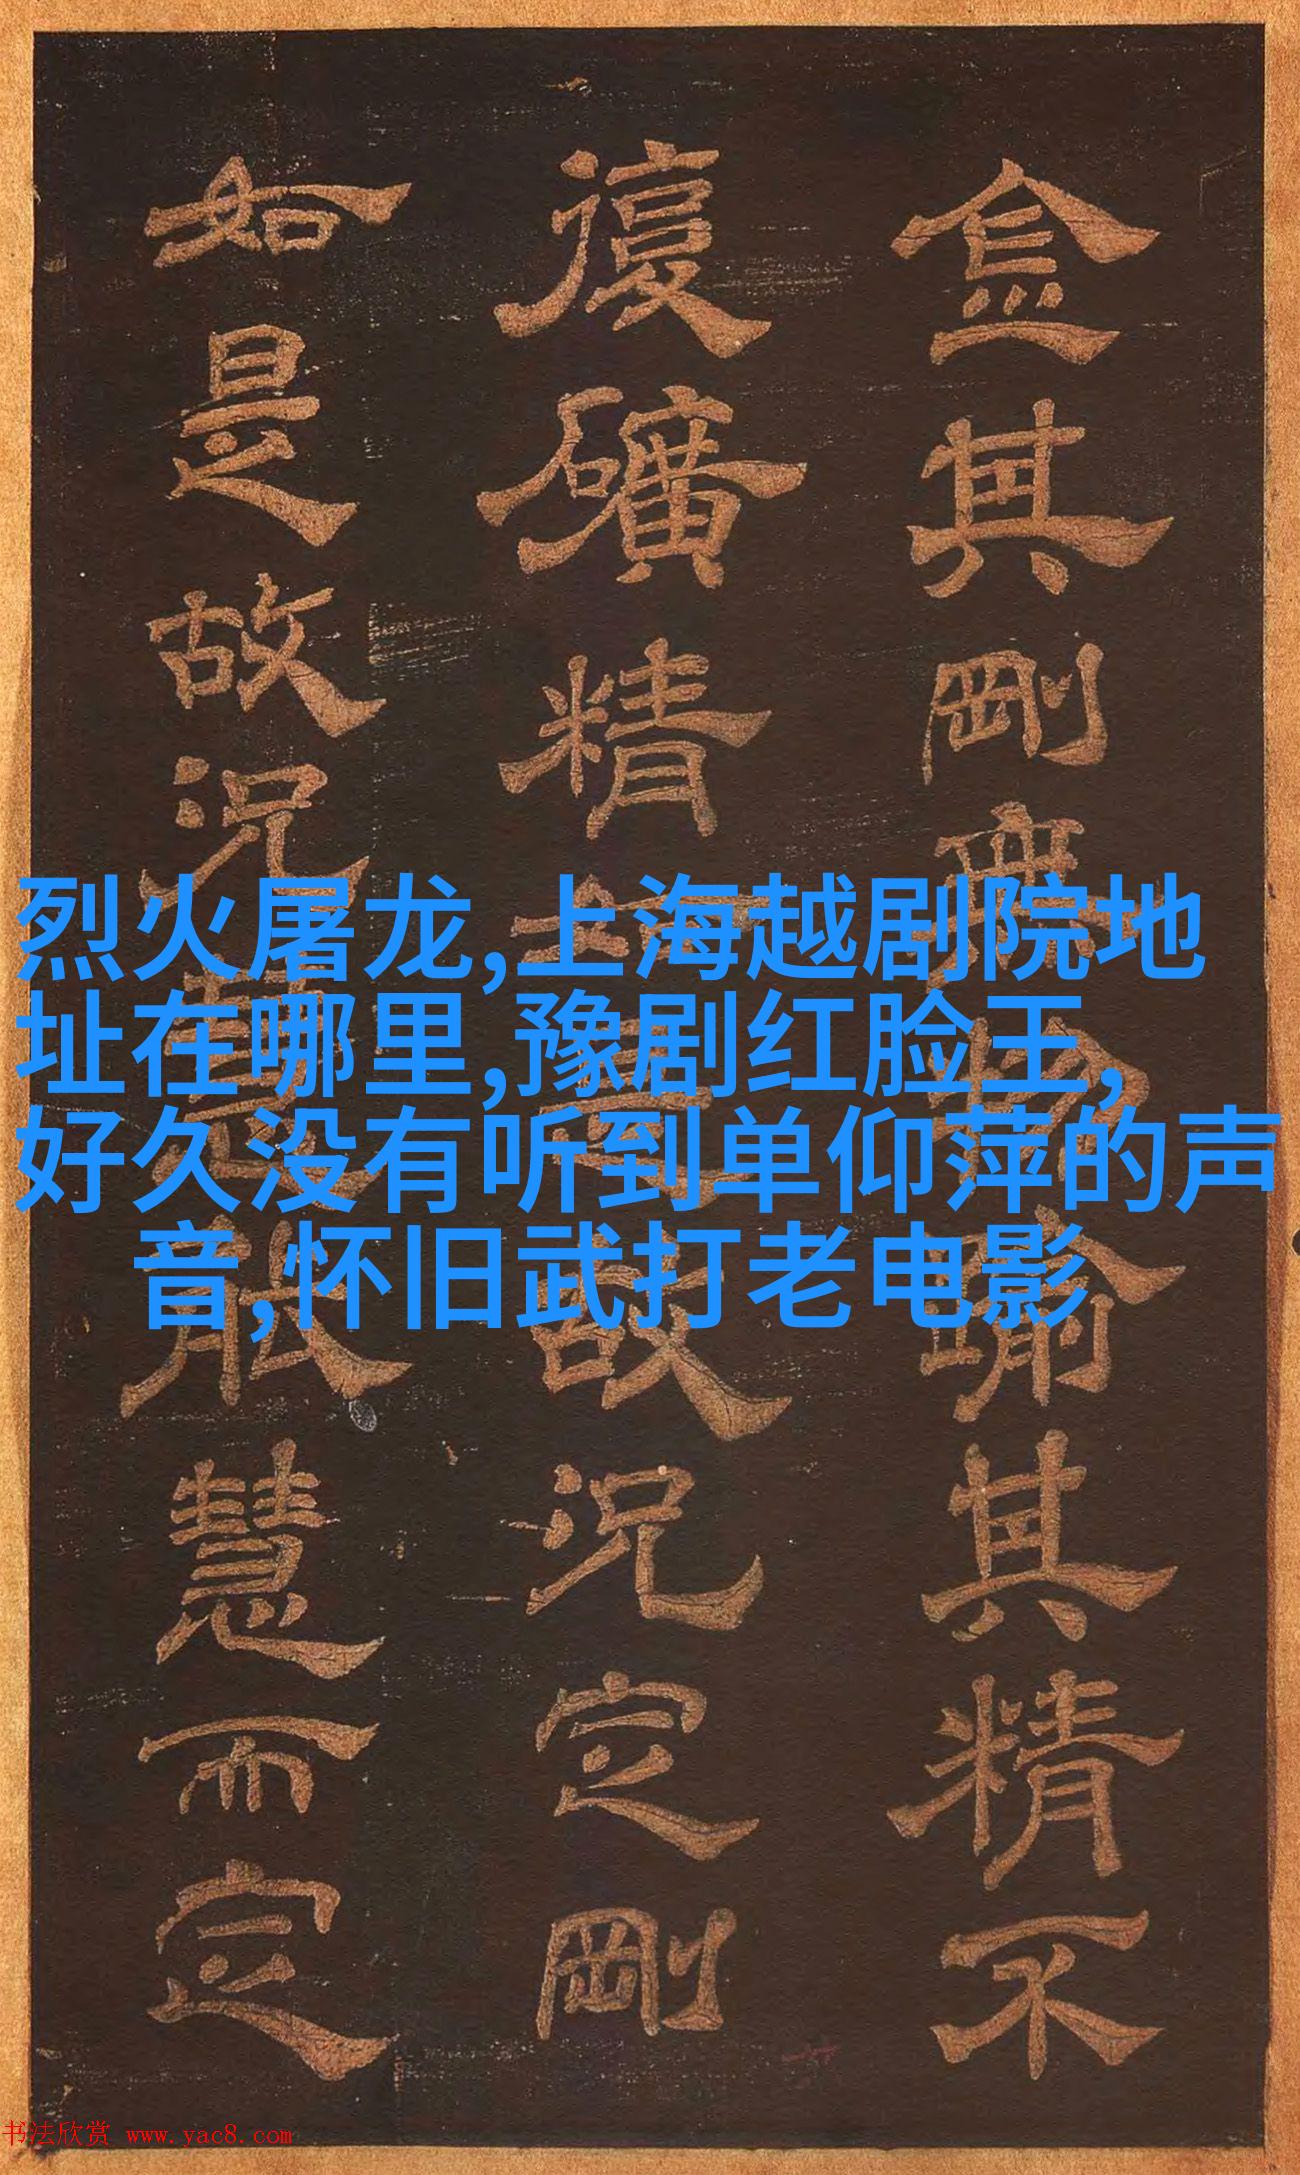 金其剛無物喻其精不
復礦精
故況定剛
如是故況慧
能慧而定
烈火屠龙,上海越剧院地
址在哪里,豫剧红脸王,
好久没有听到单仰萍的声
音,怀旧武打老电影
书法欣赏 www.yac8.com